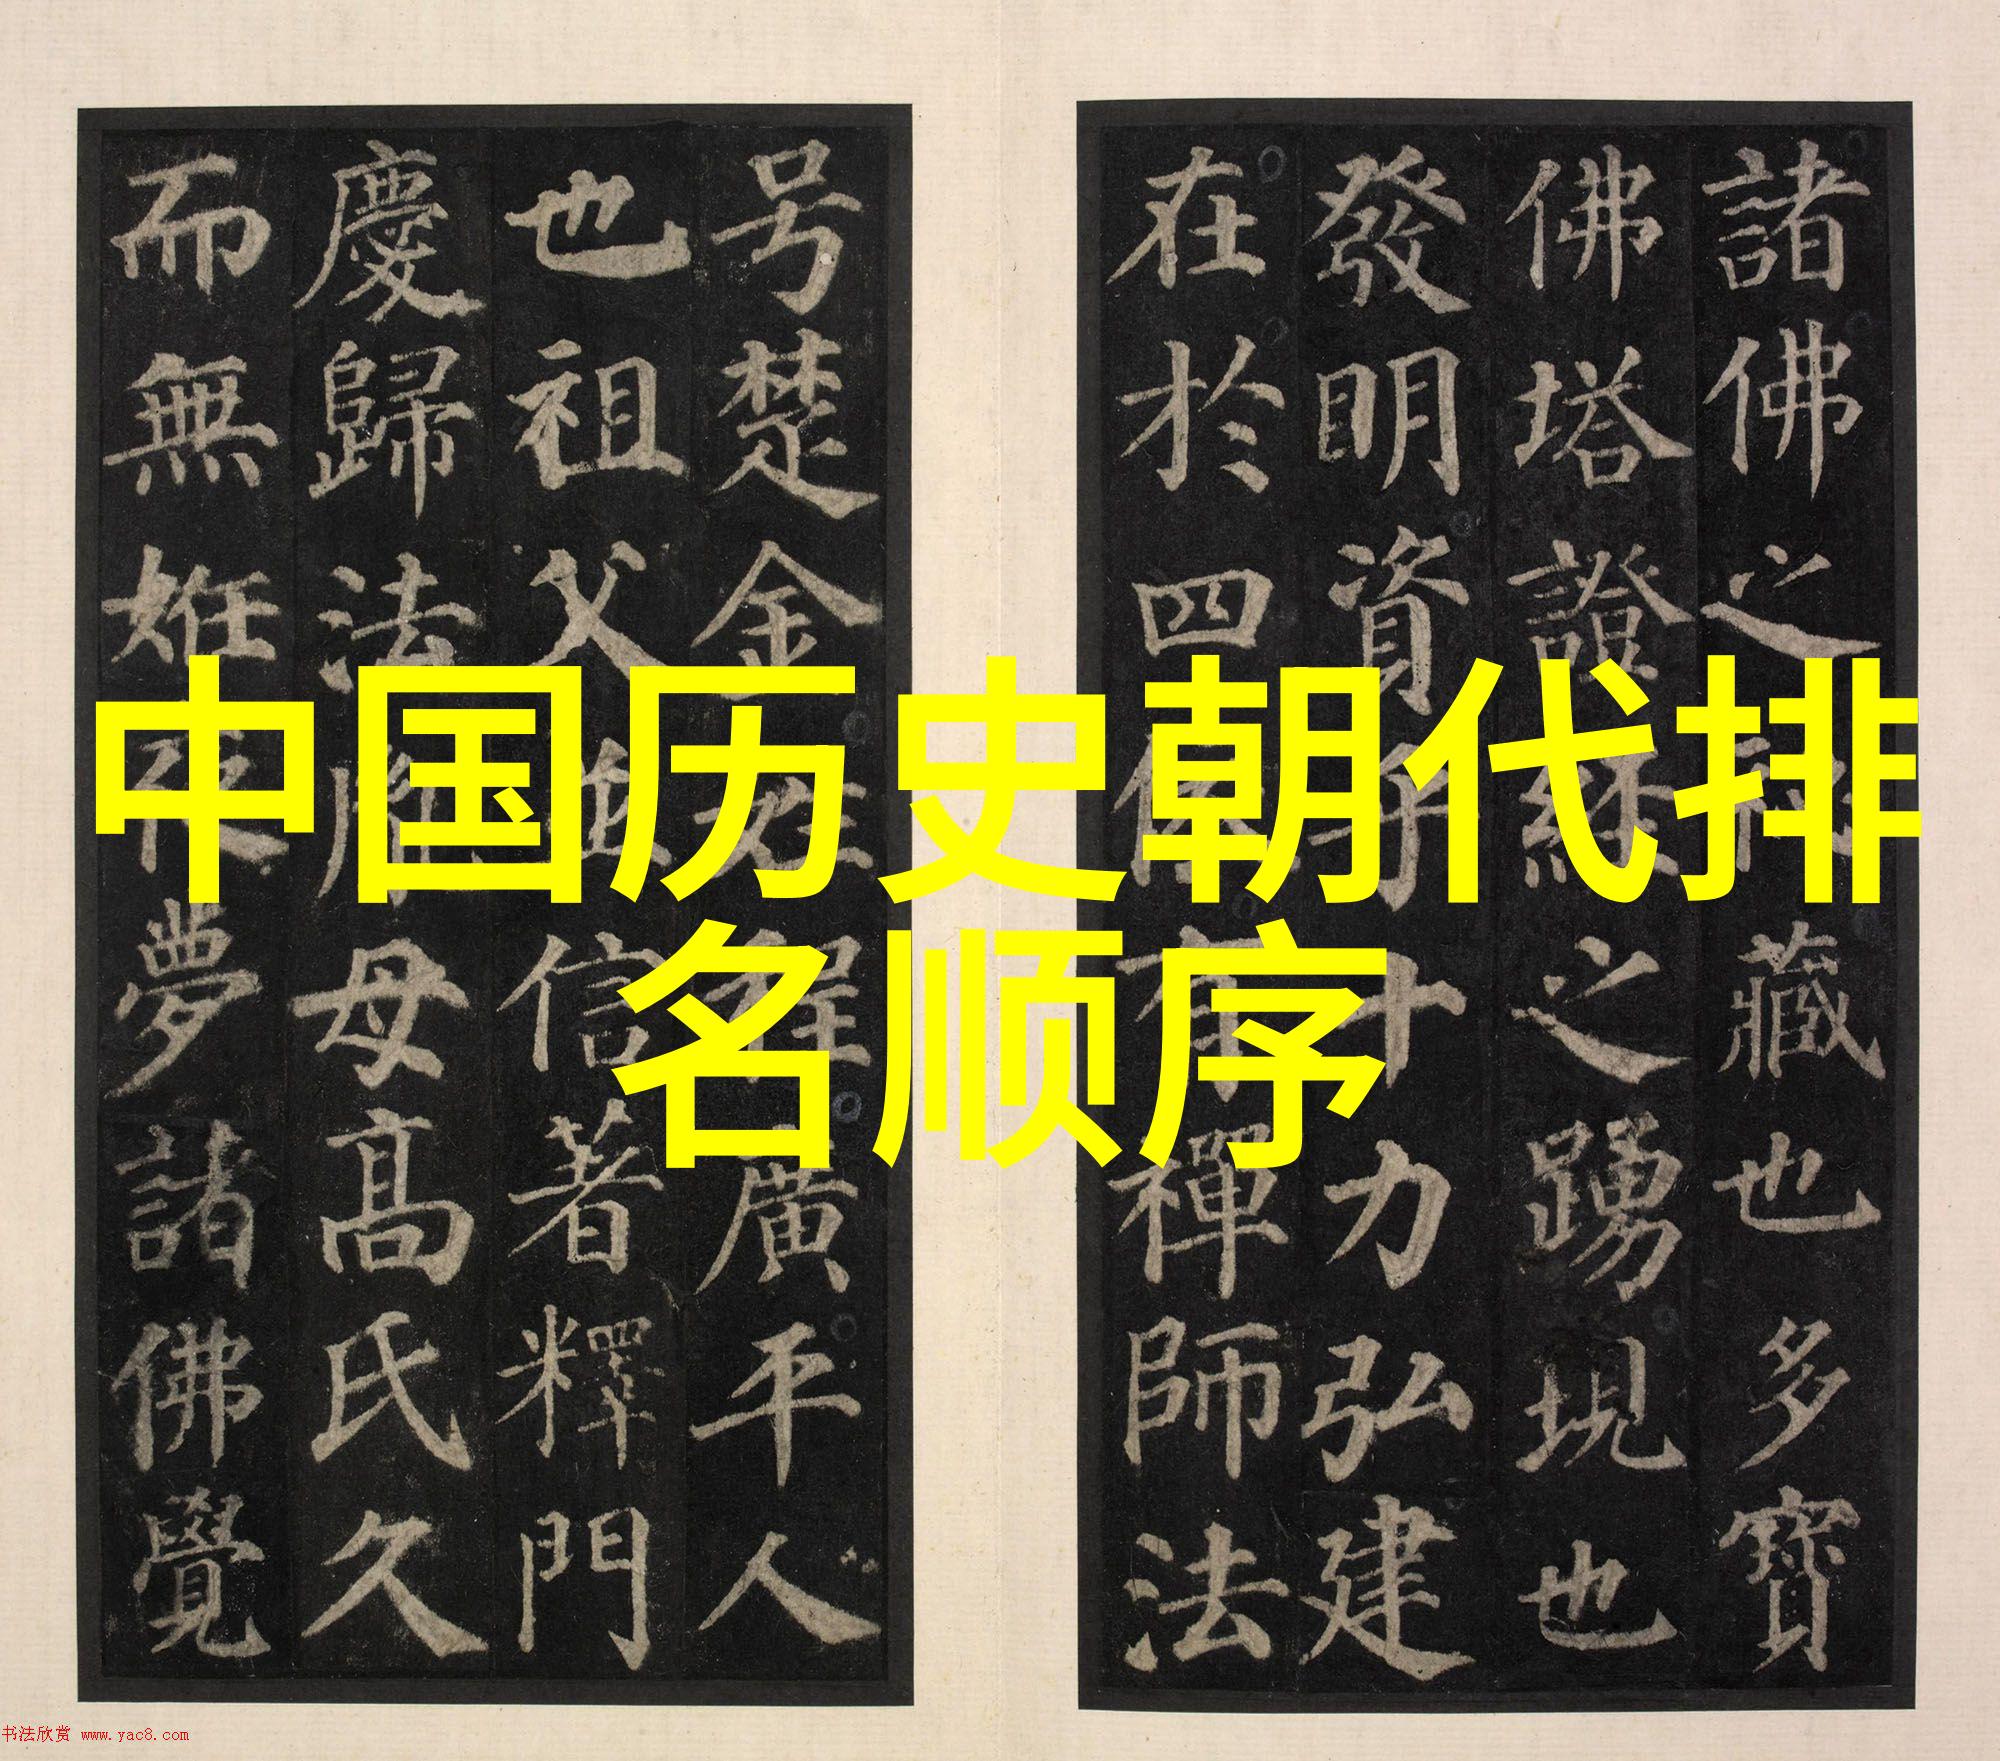 中国历史朝代排
名顺序
諸佛之秘藏也多寶
佛塔證經之踴現也
發明資乎十力弘建
在於四依有禪師法
号楚金姓程廣平人
也祖父並信著釋門
慶歸法胤母髙氏久
而無姙夜夢諸佛覺
书法欣赏 www.yac8.com